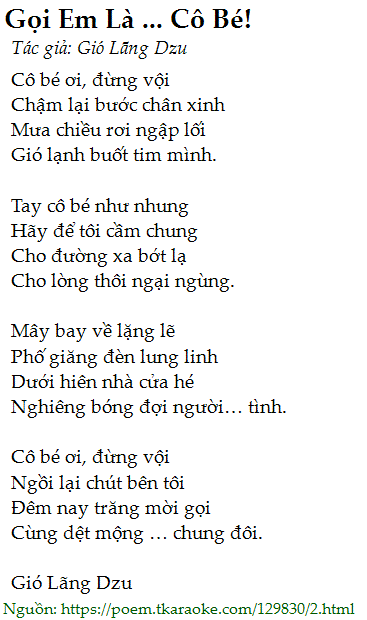 Gọi Em Là ... Cô Bé!
Tác giả: Gió Lãng Dzu
Cô bé ơi, đừng vội
Chậm lại bước chân xinh
Mưa chiều rơi ngập lối
Gió lạnh buốt tim mình.
Tay cô bé như nhung
Hãy để tôi cầm chung
Cho đường xa bớt lạ
Cho lòng thôi ngại ngùng.
Mây bay về lặng lẽ
Phố giăng đèn lung linh
Dưới hiên nhà cửa hé
Nghiêng bóng đợi người… tình.
Cô bé ơi, đừng vội
Ngồi lại chút bên tôi
Đêm nay trăng mời gọi
Cùng dệt mộng … chung đôi.
Gió Lãng Dzu
Nguồn: https://poem.tkaraoke.com/129830/2.html